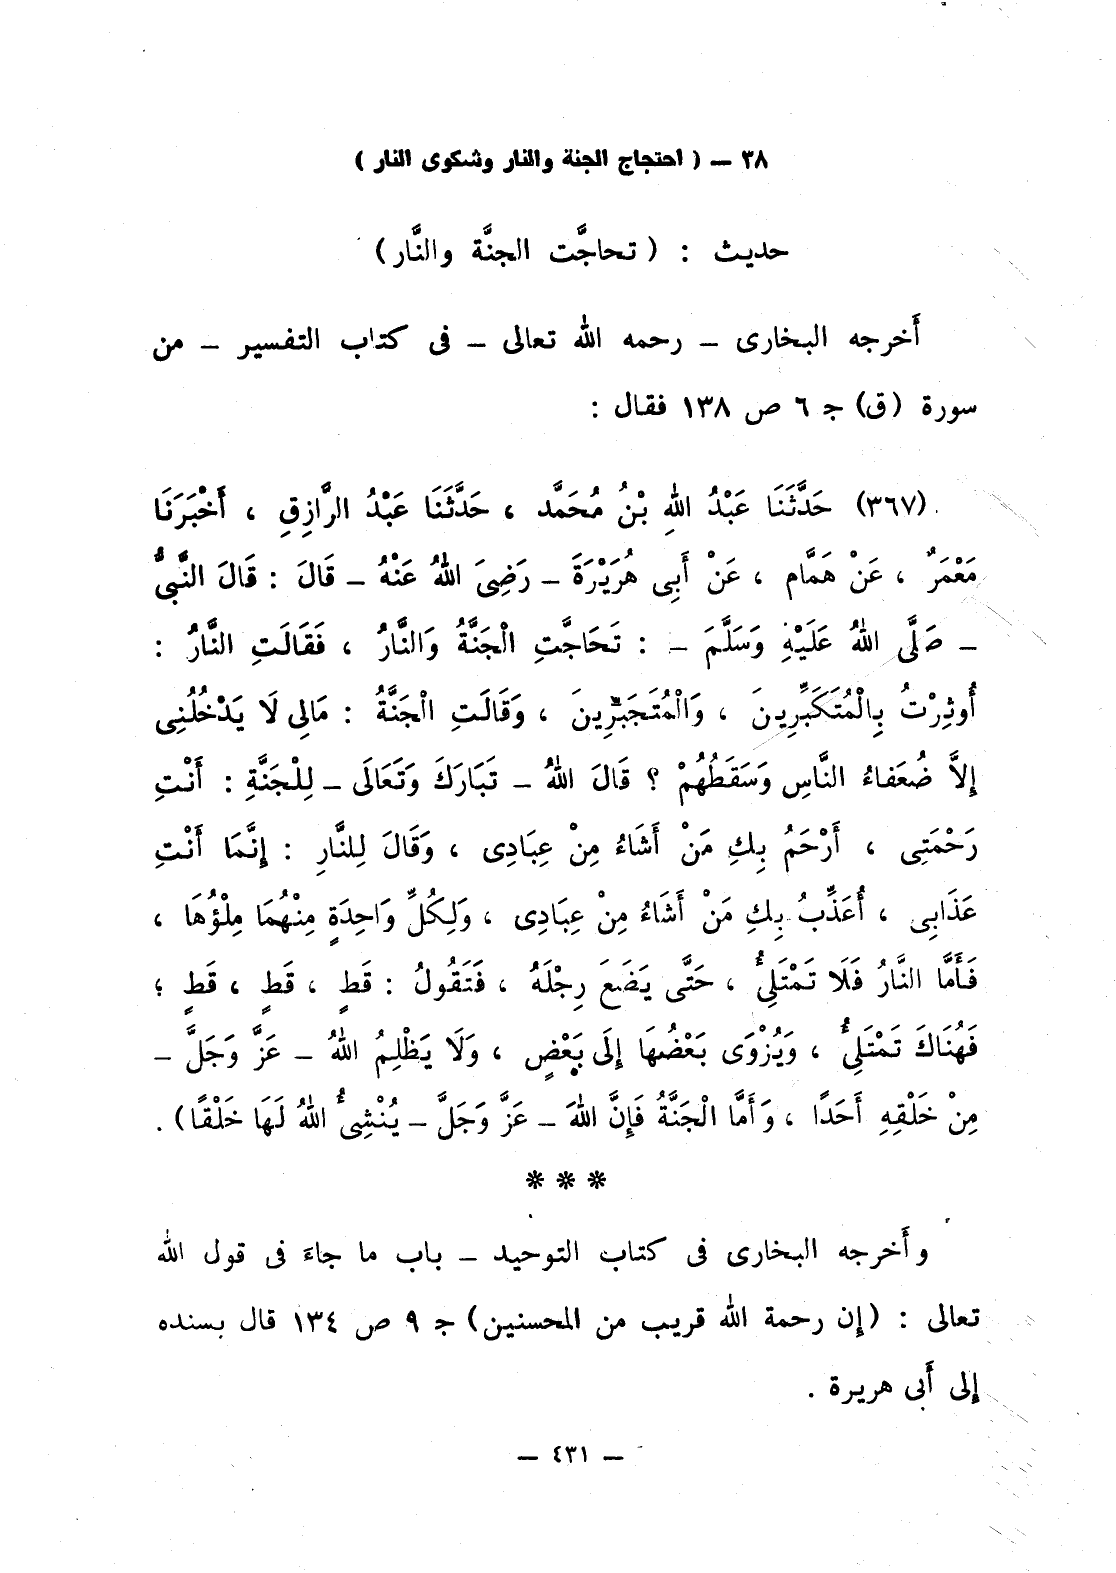 ٣٨ – ( احتجاج الجنة والنار وشكوى النار )
حديث : (تحاجَّت الجنَّة والنَّار)
أَخرجه البخارى – رحمه الله تعالى – فى كتاب التفسير – من
سورة (ق) جـ ٦ ص ١٣٨ فقال :
(٣٦٧) حَدَّثَنَا عَبْدُ اللهِ بْنُ مُحَمَّد ، حَدَّثَنَا عَبْدُ الرَّازِقِ ، أَخْبَرَنَا
مَعْمَرٌ ، عَنْ هَمَّام ، عَنْ أَبِى هُرَيْرَةَ – رَضِىَ اللهُ عَنْهُ – قَالَ : قَالَ النَّبِىُّ
– صَلَّى اللهُ عَلَيْهِ وَسَلَّمَ – : تَحَاجَّتِ الْجَنَّةُ وَالنَّارُ ، فَقَالَتِ النَّارُ :
أُوثِرْتُ بِالْمُتَكَبِّرِينَ ، وَالْمُتَجَبِّرِينَ ، وَقَالَتِ الْجَنَّةُ : مَالِى لَا يَدْخُلُنِى
إِلاَّ ضُعَفاءُ النَّاسِ وَسَقَطُهُمْ ؟ قَالَ اللهُ – تَبَارَكَ وَتَعَالَى – لِلْجَنَّةِ : أَنْتِ
رَحْمَتِى ، أَرْحَمُ بِكِ مَنْ أَشَاءُ مِنْ عِبَادِى ، وَقَالَ لِلنَّارِ : إِنَّمَا أَنْتِ
عَذَابِى ، أُعَذِّبُ بِكِ مَنْ أَشَاءُ مِنْ عِبَادِى ، وَلِكُلِّ وَاحِدَةٍ مِنْهُمَا مِلْؤُهَا ،
فَأَمَّا النَّارُ فَلَا تَمْتَلِىُٔ ، حَتَّى يَضَعَ رِجْلَهُ ، فَتَقُولُ : قَطٍ ، قَطٍ ، قَطٍ ؛
فَهُنَاكَ تَمْتَلِىُٔ ، وَيُزْوَى بَعْضُهَا إِلَى بَعْضٍ ، وَلَا يَظْلِمُ اللهُ – عَزَّ وَجَلَّ –
مِنْ خَلْقِهِ أَحَدًا ، وَأَمَّا الْجَنَّةُ فَإِنَّ اللهَ – عَزَّ وَجَلَّ – يُنْشِىُٔ اللهُ لَهَا خَلْقًا) .
* * *
وأَخرجه البخارى فى كتاب التوحيد – باب ما جاءَ فى قول الله
تعالى : (إن رحمة الله قريب من المحسنين) جـ ٩ ص ١٣٤ قال بسنده
إلى أَبى هريرة .
– ٤٣١ –